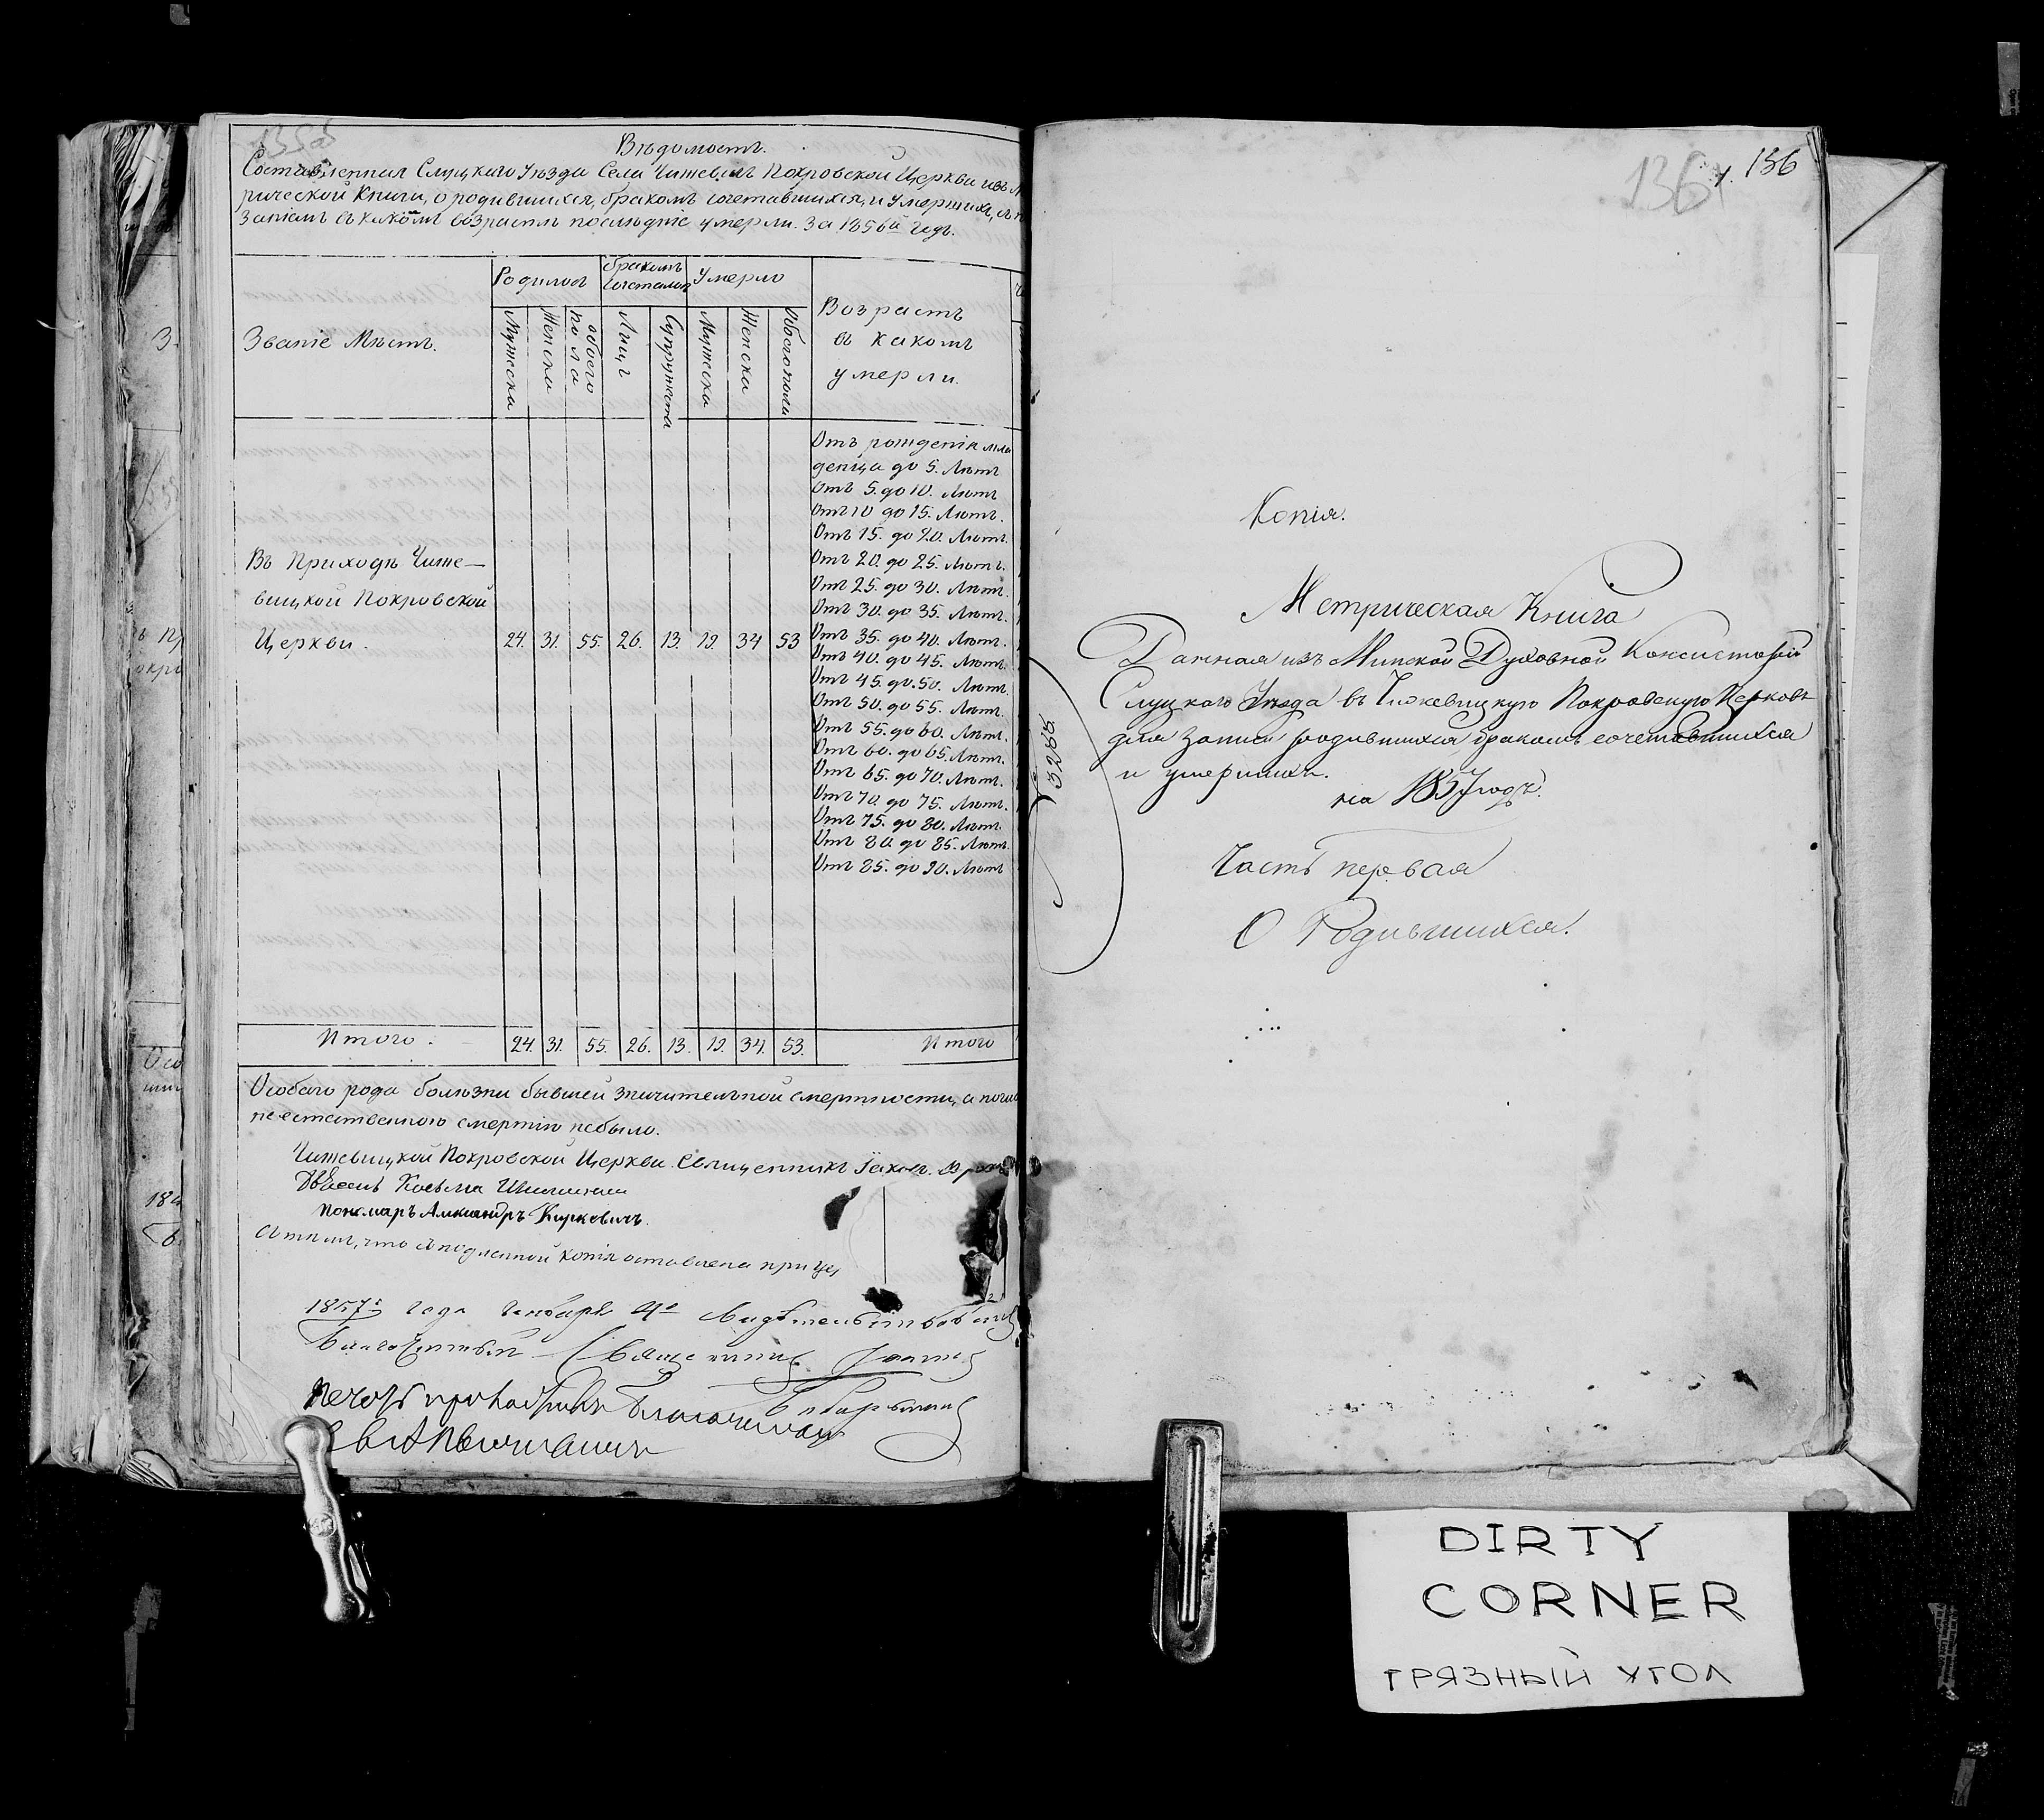 135об
Вѣдомость.
Составленная Слуцкаго Уѣзда Села Чижевичъ Покровской Церкви изъ
рической Книги, о родившихся, бракомъ сочетавшихся, и умершихъ, съ
заніемъ въ какомъ возрастѣ послѣдніе умерли. За 1856й годъ.
Званіе Мѣстъ.
Родилось
бракомъ сочеталось
Умерло
Возрастъ
въ какомъ
умерли.
Мужеска
Женска
обоего пола
Лицъ
Супружества
Мужеска
Женска
Обоего пола
Отъ рожденія мла
денца до 5. Лѣтъ
Отъ 5. до 10. Лѣтъ
Отъ 10 до 15. Лѣтъ.
Отъ 15. до 20. Лѣтъ.
Отъ 20. до 25. Лѣтъ.
Отъ 25. до 30. Лѣтъ.
Отъ 30. до 35. Лѣтъ.
Отъ 35. до 40. Лѣтъ.
Отъ 40. до 45. Лѣтъ.
Отъ 45. до 50. Лѣтъ.
Отъ 50. до 55. Лѣтъ.
Отъ 55. до 60. Лѣтъ.
Отъ 60. до 65. Лѣтъ.
Отъ 65. до 70. Лѣтъ.
Отъ 70. до 75. Лѣтъ.
Отъ 75. до 80. Лѣтъ.
Отъ 80. до 85. Лѣтъ.
Отъ 85. до 90. Лѣтъ
Въ Приходѣ Чиже—
вицкой Покровской
Церкви. 24. 31. 55. 26. 13. 19. 34 53
Итого. 24. 31. 55. 26. 13. 19. 34. 53. Итого
Особаго рода болѣзни бывшей значительной смертности, а
неестественною смертію небыло.
Чижевицкой Покровской Церкви Священникъ Іаковъ
Косьма
Пономарь Александръ Киркевичъ.
что съ подленной копія оставлена при
1857 года Генваря 4 Свидѣтельствовалъ
Благочинный Священникъ
136
136
Копія.
Метрическая Книга
Данная изъ Минской Духовной Консисторіи
Слуцкаго Уѣзда въ Чижевицкую Покровскую Церковь
для записи родившихся бракомъ сочетавшихся
и умершихъ.
на 1857 годъ.
Часть первая
О Родившихся.
3285.
DIRTY
CORNER
ГРЯЗНЫЙ УГОЛ